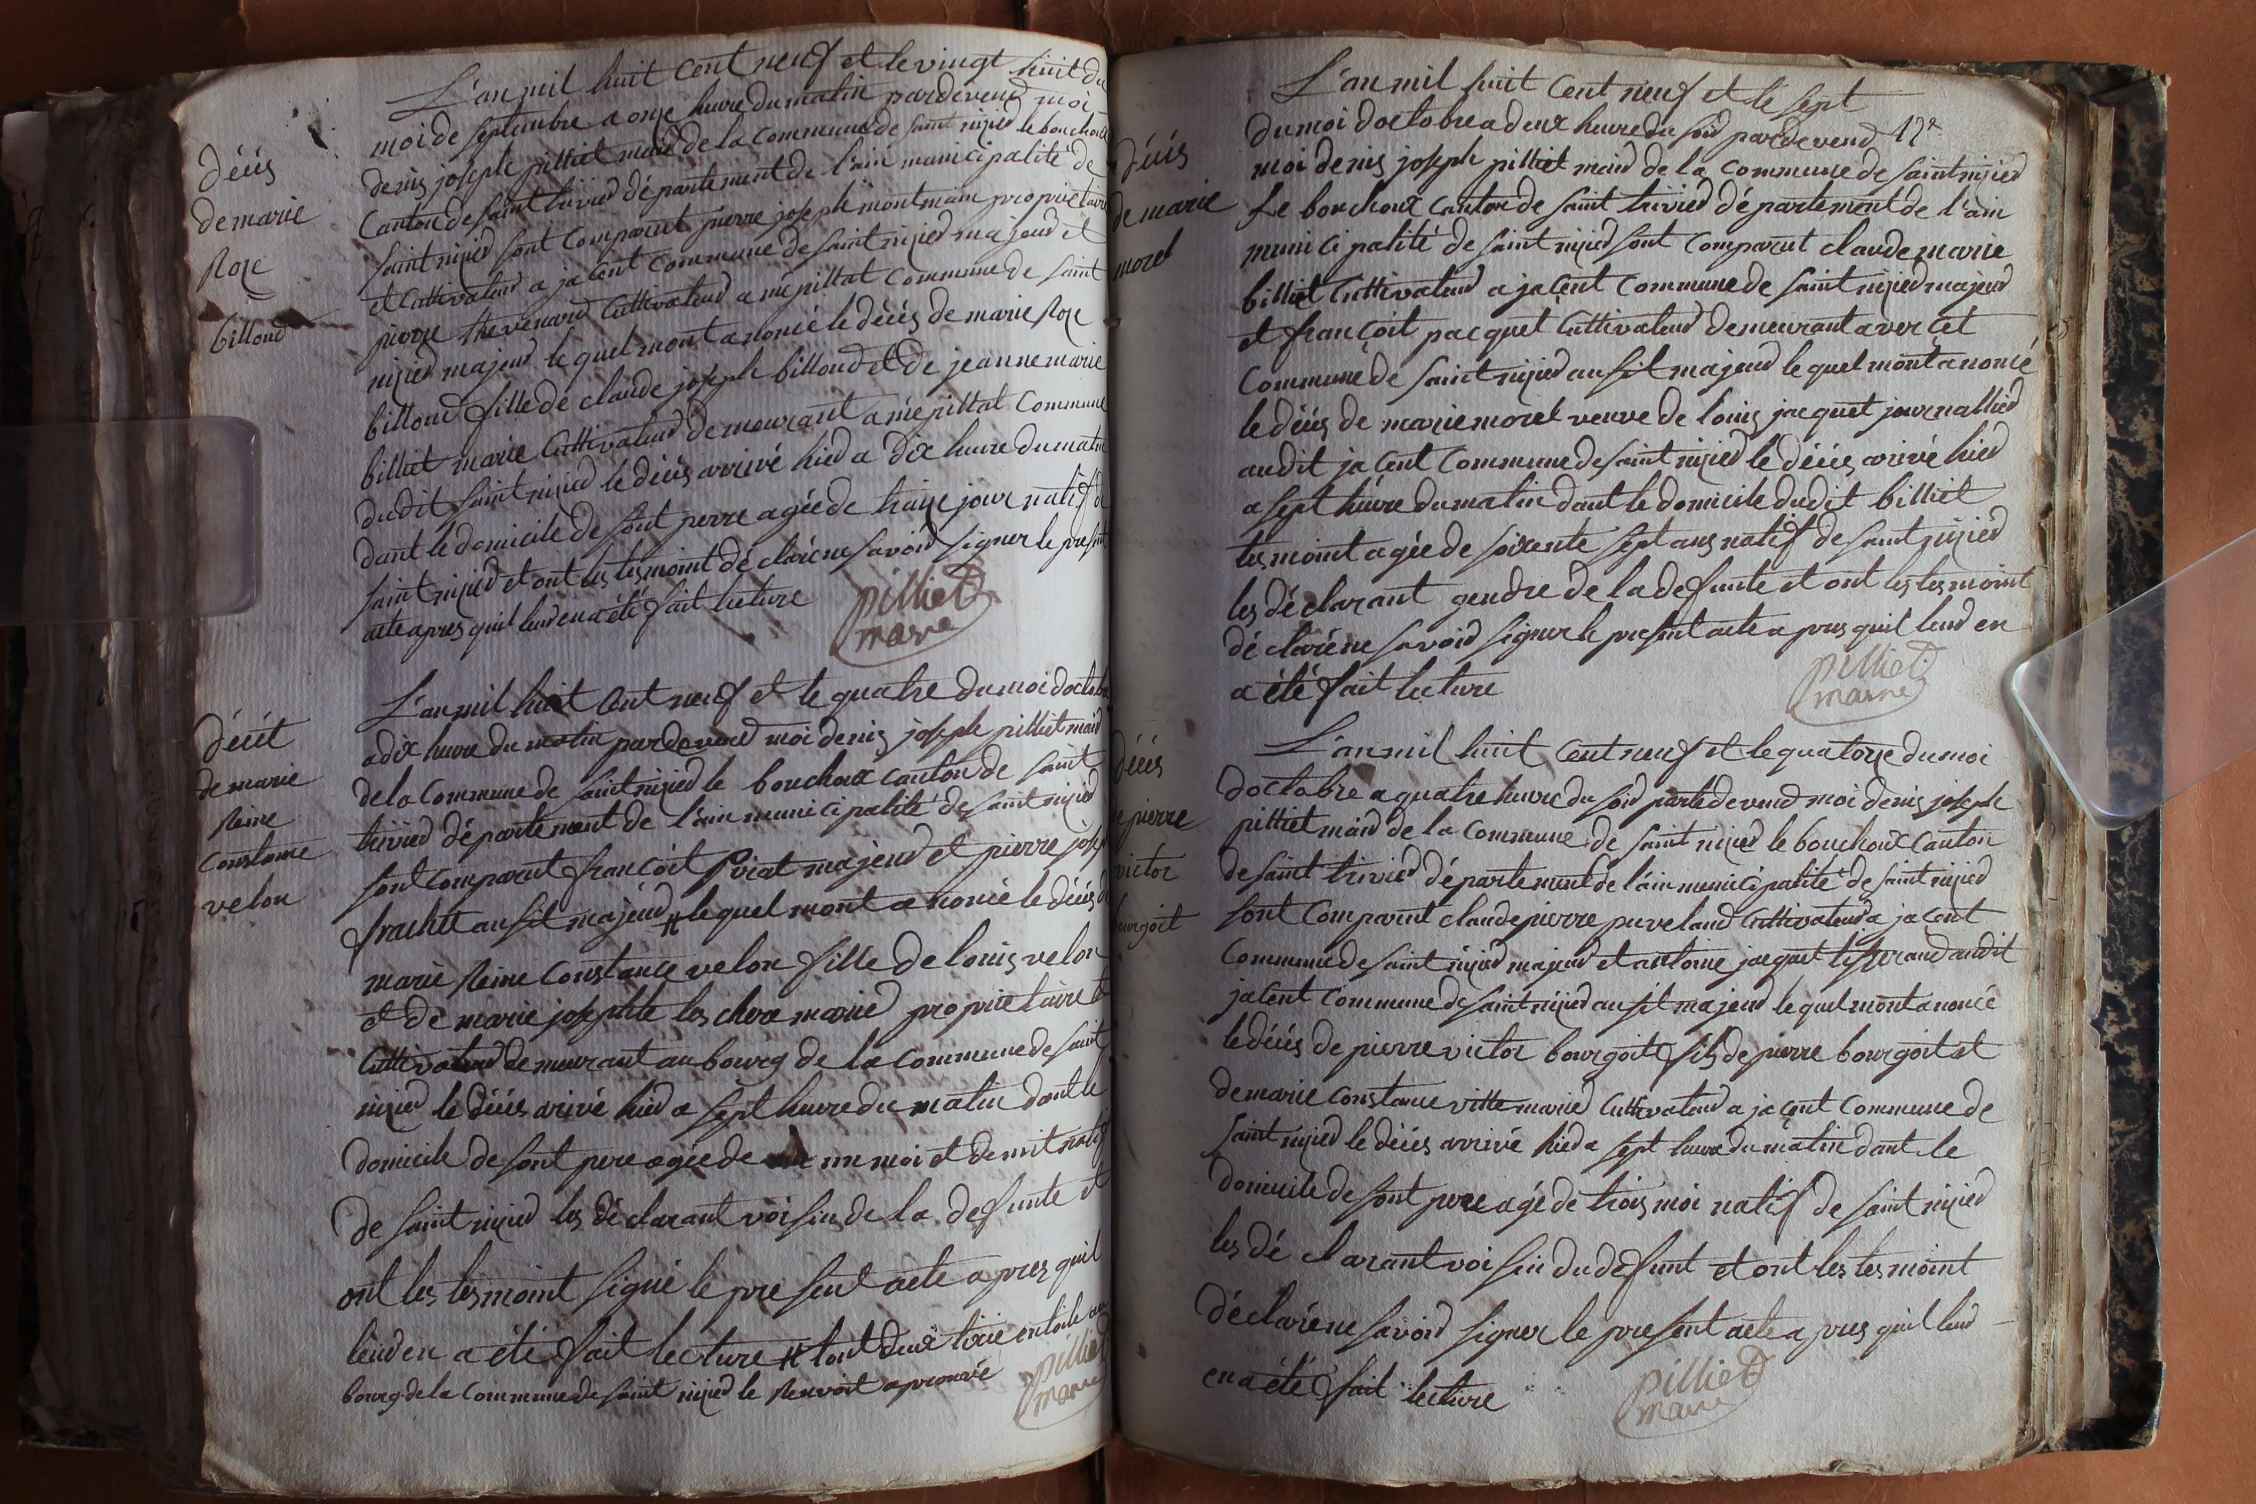 décès
de marie
Roze
billoud
L'an mil huit cent neuf et le vingt huit du
moi de septembre a onze heure du matin pardevend moi
denis joseph pilliet maid de la commune de saint nizied le bouchoux
Canton de saint trivied département de l'ain municipalité de
saint nizied sont comparut pierre joseph montmain propriétaire
et cultivateud a jacent commune de saint nizied majeud et
pierre thevenard cultivateud a mépillat commune de saint
nizied majeud le quel mont anoncé le décès de marie Roze
billoud fille de claude joseph billoud et de jeanne marie
billiet marié cultivateud demeurant a mépillat commune
dudit saint nizied le décès arrivé hied a dix heure du matin
dant le domicile de sont perre agée de traize jour natif de
saint nizied et ont les tesmoint déclaré ne savoid signer le present
acte apres quil leud en a été fait lecture
pilliet
maire
décèt
de marie
Reine
constance
velon
L'an mil huit cent neuf et le quatre du moi doctobre
a dix heure du matin pardevend moi denis joseph pilliet maid
de la commune de saint nizied le bouchoux canton de saint
trivied département de l'ain municipalité de saint nizied
sont comparut françoit Piriat majeud et pierre joseph
frachet ausit majeud # le quel mont anoncé le décès de
marie Reine constance velon fille de louis velon
et de marie josephte los cheve marié propriétaire et
cultivateud demeurant au bourg de la commune de saint
nizied le décès arivé hied a sept heure du matin dant le
domicile de sont pere agée de un moi et demit natif
de saint nizied les déclarant voisin de la defunte et
ont les tesmoint signé le present acte apres quil
leud en a été fait lecture # tout deux tixié en toile au
bourg de la commune de saint nizied le Renvoit aprouvé
pilliet
maire
décès
de marie
morel
L'an mil huit cent neuf et le sept
du moi doctobre a deux heure du soid pardevend
moi denis joseph pilliet maid de la commune de saint nizied
Le bouchoux canton de saint trivied département de l'ain
municipalité de saint nizied sont comparut claude marie
billiet cultivateud a jacent commune de saint nizied majeud
et françoit pacquet cultivateud demeurant a verget
commune de saint nizied ausit majeud le quel mont anoncé
le décès de marie morel veuve de louis jacquet journallied
audit jacent commune de saint nizied le décès arivé hied
a sept heure du matin dant le domicile dudit billiet
tesmoint agée de soixente sept ans natif de saint nizied
les déclarant gendre de la defunte et ont les tesmoint
déclaré ne savoid signer le present acte apres quil leud en
a été fait lecture
pilliet
maire
décès
de pierre
victor
bourgoit
L'an mil huit cent neuf et le quatorze du moi
doctobre a quatre heure du soid pardevend moi denis joseph
pilliet maid de la commune de saint nizied le bouchoux canton
de saint trivied département de l'ain municipalité de saint nizied
sont comparut claude pierre puveland cultivateud a jacent
commune de saint nizied majeud et antoine jacquet tisserand audit
jacent commune de saint nizied ausit majeud le quel mont anoncé
le décès de pierre victor bourgoit fils de pierre bourgoit et
de marie constance vitte marié cultivateud a jacent commune de
saint nizied le décès arrivé hied a sept heure du matin dant le
domicile de sont pere agé de trois moi natif de saint nizied
les déclarant voisin du defunt et ont les tesmoint
déclaré ne savoid signer le present acte apres quil leud
en a été fait lecture
pilliet
maire